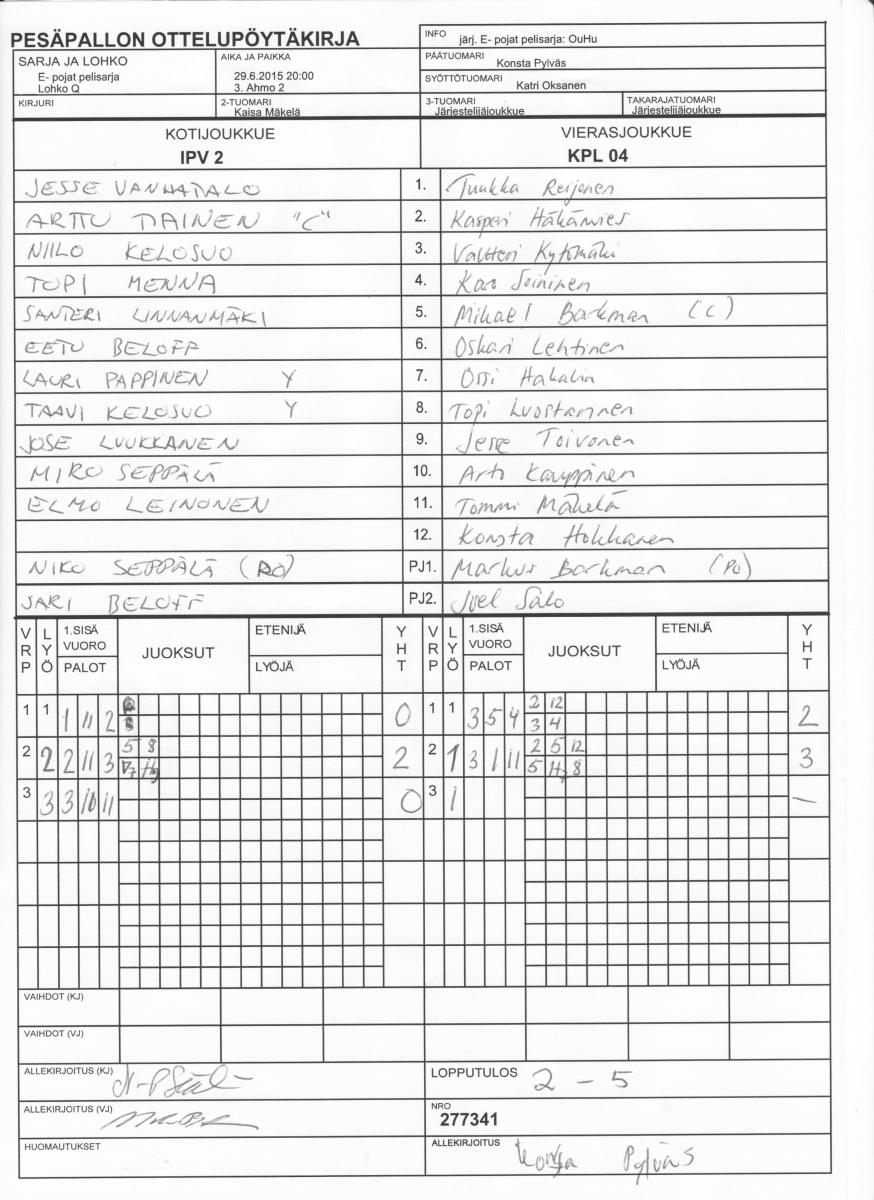 PESÄPALLON OTTELUPÖYTÄKIRJA
INFO järj. E- pojat pelisarja: OuHu
SARJA JA LOHKO
E- pojat pelisarja
Lohko Q
AIKA JA PAIKKA
29.6.2015 20:00
3. Ahmo 2
PÄÄTUOMARI
Konsta Pylväs
SYÖTTÖTUOMARI
Katri Oksanen
KIRJURI
2-TUOMARI
Kaisa Mäkelä
3-TUOMARI
Järjestelijäjoukkue
TAKARAJATUOMARI
Järjestelijäjoukkue
KOTIJOUKKUE VIERASJOUKKUE
IPV 2 KPL 04
JESSE VANHATALO 1. Tuukka Reijonen
ARTTU TIAINEN "C" 2. Kasperi Häkämies
NIILO KELOSUO 3. Valtteri Kytömäki
TOPI MENNA 4. Soininen
SANTERI LINNANMÄKI 5. Mikael Barkman (C)
EETU BELOFF 6. Oskari Lehtinen
LAURI PAPPINEN Y 7. Ossi Hakalin
TAAVI KELOSUO Y 8. Topi Luostarinen
JOSE LUUKKANEN 9. Jesse Toivonen
MIRO SEPPÄLÄ 10. Arto Kauppinen
ELMO LEINONEN 11. Tommi Mäkelä
12. Konsta Hokkanen
NIKO SEPPÄLÄ (PO) PJ1. Markus Barkman (PO)
JARI BELOFF PJ2. Joel Salo
VRP LYÖ 1.SISÄ VUORO PALOT JUOKSUT ETENIJÄ LYÖJÄ YHT VRP LYÖ 1.SISÄ VUORO PALOT JUOKSUT ETENIJÄ LYÖJÄ YHT
1 1 1 11 2 0 1 1 3 5 4 2 12 2
3 4
2 2 2 11 3 5 8 2 2 1 3 1 11 2 5 12 3
5 H7 8
3 3 3 10 11 0 3 1 –
VAIHDOT (KJ)
VAIHDOT (VJ)
ALLEKIRJOITUS (KJ)
LOPPUTULOS 2 - 5
ALLEKIRJOITUS (VJ)
NRO
277341
HUOMAUTUKSET
ALLEKIRJOITUS Konsta Pylväs